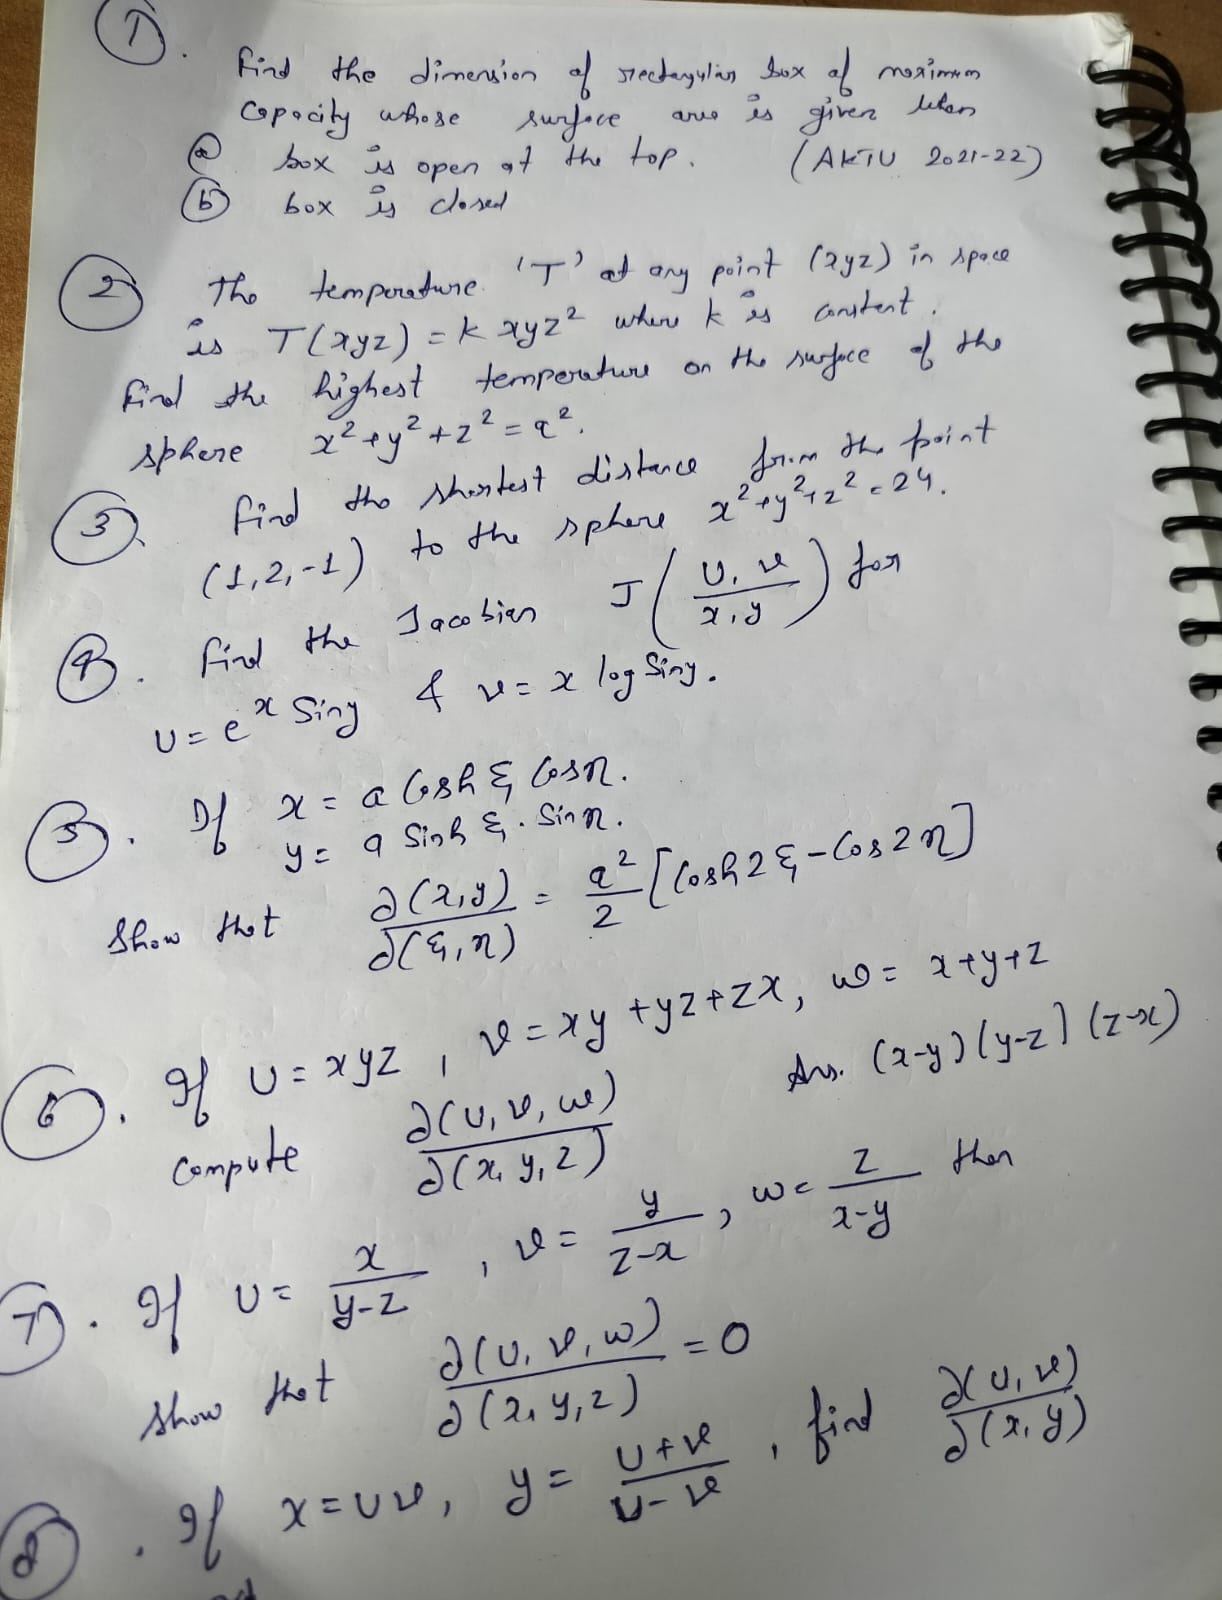 1. Find the dimension of rectangular box of maximum
capacity whose surface area is given when
(a) box is open at the top. (AKTU 2021-22)
(b) box is closed
2 The temperature 'T' at any point (xyz) in space
is T(xyz) = k xyz² where k is constant.
Find the highest temperature on the surface of the
sphere x²+y²+z² = a².
3. Find the shortest distance from the point
(1,2,-1) to the sphere x²+y²+z² = 24.
4. Find the Jacobian J(U,v/x,y) for
U = e^x Siny & v = x log Siny.
5. If x = a Cosh ξ Cosη.
y = a Sinh ξ. Sinη.
Show that ∂(x,y)/∂(ξ,η) = a²/2 [Cosh2ξ - Cos2η]
6. If U = xyz, v = xy+yz+zx, w = x+y+z
Compute ∂(U,v,w)/∂(x,y,z) Ans. (x-y)(y-z)(z-x)
7. If U = x/y-z, v = y/z-x, w = z/x-y then
show that ∂(U,v,w)/∂(x,y,z) = 0
8. If x = Uv, y = U+v/U-v, find ∂(U,v)/∂(x,y)